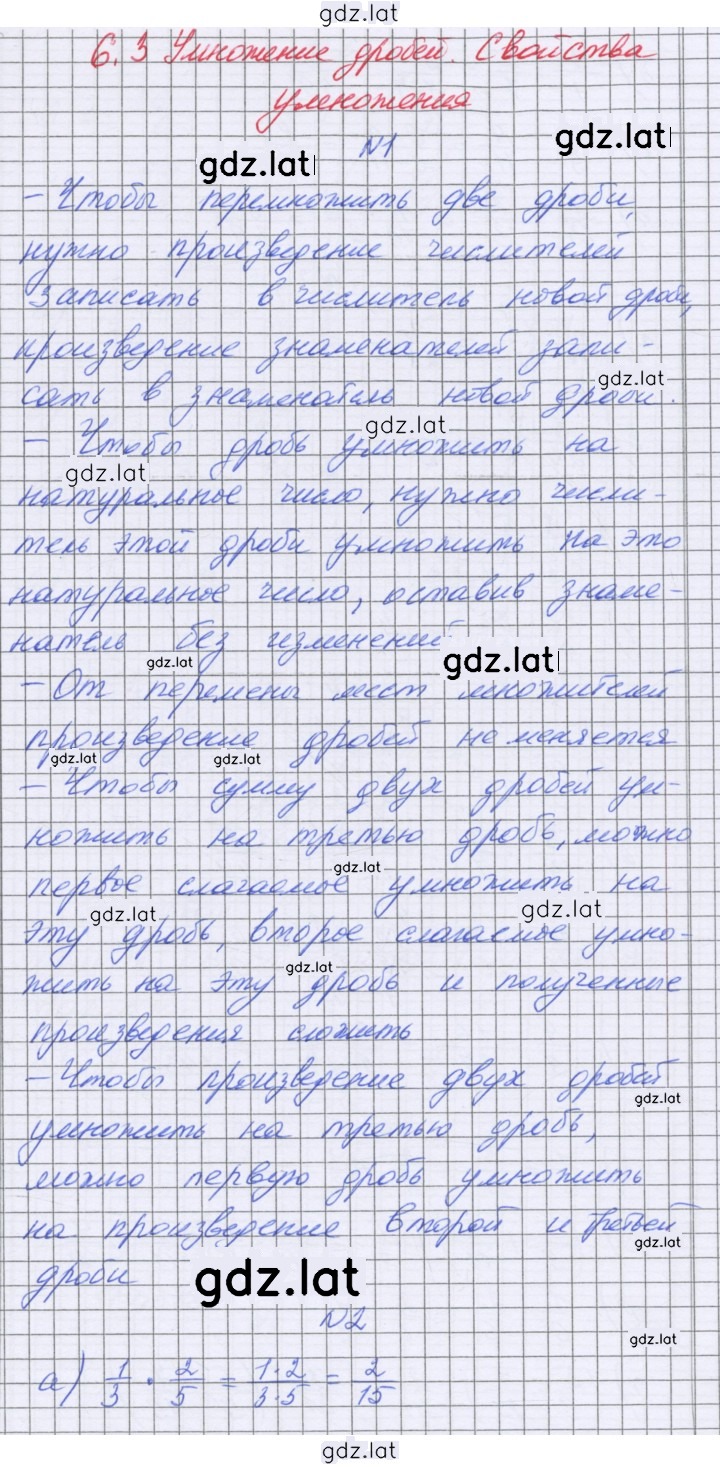 gdz.lat
6.3 Умножение дробей. Свойства
умножения
gdz.lat
gdz.lat
N1
- Чтобы перемножить две дроби,
нужно произведение числителей
записать в числитель новой дроби,
произведение знаменателей запи-
gdz.lat
сать в знаменатель новой дроби.
gdz.lat
- Чтобы дробь умножить на
gdz.lat
натуральное число, нужно числи-
тель этой дроби умножить на это
натуральное число, оставив знаме-
натель без изменений.
gdz.lat
gdz.lat
- От перемены мест множителей
произведение дробей не меняется
gdz.lat
gdz.lat
- Чтобы сумму двух дробей ум-
ножить на третью дробь, можно
gdz.lat
первое слагаемое умножить на
gdz.lat
gdz.lat
эту дробь, второе слагаемое умно-
gdz.lat
жить на эту дробь и полученные
произведения сложить
- Чтобы произведение двух дробей
gdz.lat
умножить на третью дробь,
можно первую дробь умножить
на произведение второй и третьей
gdz.lat
дроби
gdz.lat
N2
gdz.lat
а) 1/3 · 2/5 = 1·2/3·5 = 2/15
gdz.lat